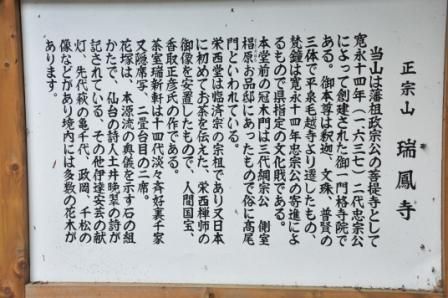 正宗山 瑞鳳寺
当山は藩祖政宗公の菩提寺として
寛永十四年(一六三七)二代忠宗公
によって創建された御一門格寺院で
ある。御本尊は釈迦、文珠、普賢の
三体で平泉毛越寺より遷したもの、
梵鐘は寛永十四年忠宗公の寄進によ
るもので県指定の文化財である。
本堂前の冠木門は三代綱宗公 側室
椙原お品邸にあったもので俗に高尾
門といわれている。
栄西堂は臨済宗の宗祖であり又日本
に初めてお茶を伝えた、栄西禅師の
御像を安置したもので、人間国宝、
香取正彦氏の作である。
茶室瑞新軒は十四代淡々斉好裏千家
又隠席写、二畳台目の二席。
花塚は、本源流の奥儀を示す石の組
かたで、仙台の詩人土井晩翠の詩が
記されている、その他伊達安芸の献
灯、先代萩の亀千代、政岡、千松の
像などがあり境内には多数の花木が
あります。